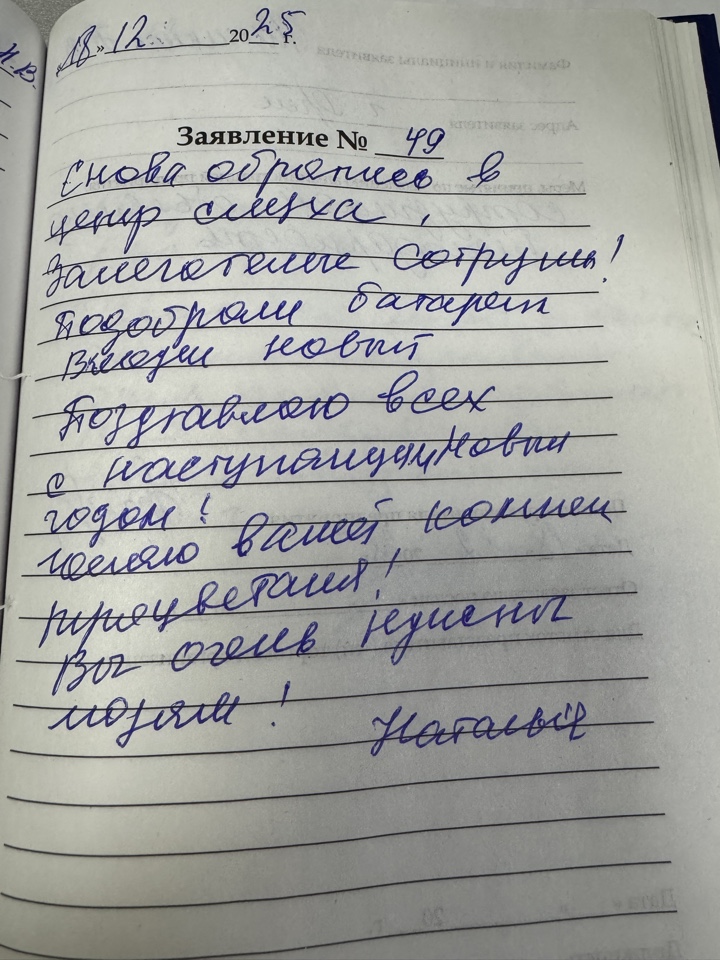 «18» 12. 2025 г.
Заявление № 49
Снова обратилась в
центр слуха,
Замечательные сотрудн!
Подобрали батареи
новый
Поздравляю всех
с наступающим Новым
годом!
Желаю вашей компании
процветания!
Вы очень нужны
людям!
Наталья
Н.В.